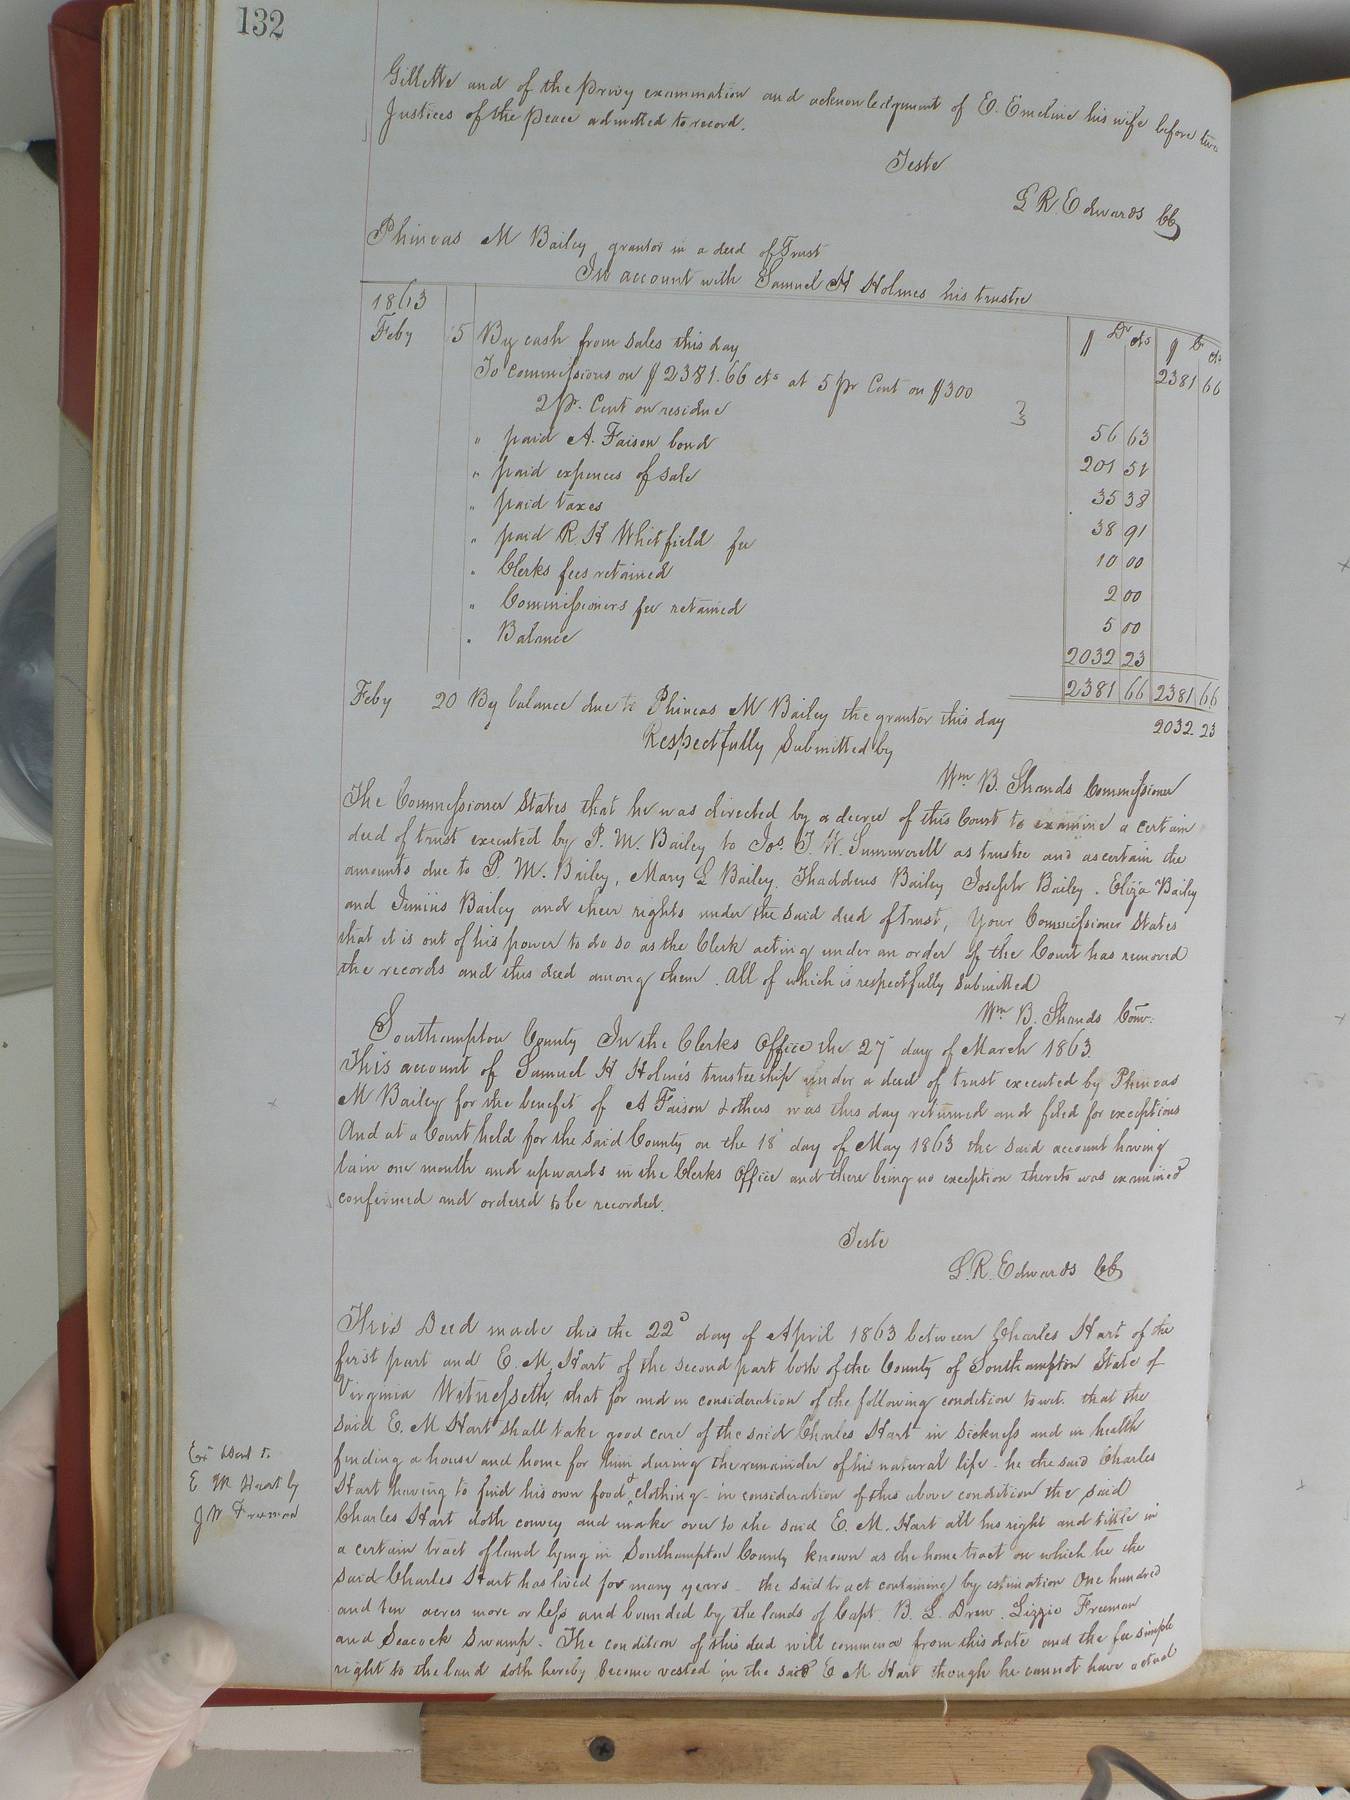 132
Gillette and of the privy examination and acknowledgment of E. Emeline his wife before two
Justices of the Peace admitted to record.
Teste
L R Edwards CC
Phineas M Bailey grantor in a deed of Trust
In account with Samuel H Holmes his trustee
1863
$ Dr cts $ Cr cts
Feby 5 By cash from sales this day 2381 66
To commissions on $2381.66 cts at 5 pr Cent on $300
2 pr. Cent on residue } 56 63
" paid A. Faison bond 201 51
" paid expences of sale 35 38
" paid taxes 38 91
" paid R. H Whitfield fee 10 00
" Clerks fees retained 2 00
" Commissioners fee retained 5 00
" Balance 2032 23
2381 66 2381 66
Feby 20 By balance due to Phineas M Bailey the grantor this day 2032.23
Respectfully Submitted by
Wm B. Shands Commissioner
The Commissioner States that he was directed by a decree of this Court to examine a certain
deed of trust executed by P. M. Bailey to Jos. T. W. Summerell as trustee and ascertain the
amounts due to P. M. Bailey, Mary L Bailey, Thaddeus Bailey Joseph Bailey. Eliza Bailey
and Junius Bailey and their rights under the said deed of trust, Your Commissioner States
that it is out of his power to do so as the Clerk acting under an order of the Court has removed
the records and this deed among them. All of which is respectfully submitted
Wm B. Shands Comr.
Southampton County In the Clerks Office the 27 day of March 1863.
This account of Samuel H Holmes trusteeship under a deed of trust executed by Phineas
M Bailey for the benefit of A Faison & others was this day returned and filed for exceptions
And at a Court held for the said County on the 18 day of May 1863 the said account having
lain one month and upwards in the Clerks Office and there being no exception thereto was examined
confirmed and ordered to be recorded.
Teste
L. R. Edwards CC
This Deed made this the 22d day of April 1863 between Charles Hart of the
first part and E. M. Hart of the second part both of the County of Southampton State of
Virginia Witnesseth, that for and in consideration of the following condition towit. that the
said E. M Hart shall take good care of the said Charles Hart in sickness and in health
finding a house and home for him during the remainder of his natural life - he the said Charles
Hart having to find his own food & clothing - in consideration of this above condition the said
Charles Hart doth convey and make over to the said E. M. Hart all his right and tittle in
a certain tract of land lying in Southampton County known as the home tract on which he the
said Charles Hart has lived for many years - the said tract containing by estimation One hundred
and ten acres more or less and bounded by the lands of Capt. B. L. Drew. Lizzie Freeman
and Seacock Swamp. The condition of this deed will commence from this date and the fee simple
right to the land doth hereby become vested in the said E M Hart though he cannot have actual
E M Hart by
J W Freeman